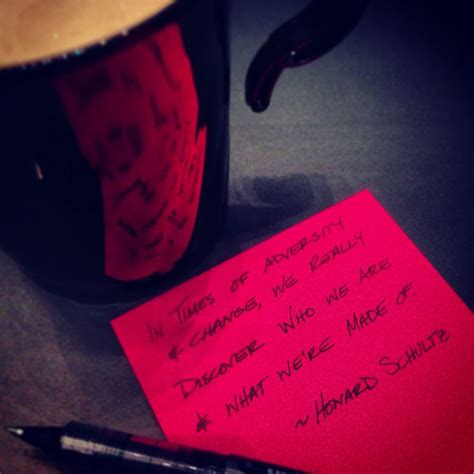 In Times of adversity
& change, we really
Discover who we are
& what we're made of.
~ Howard Schultz